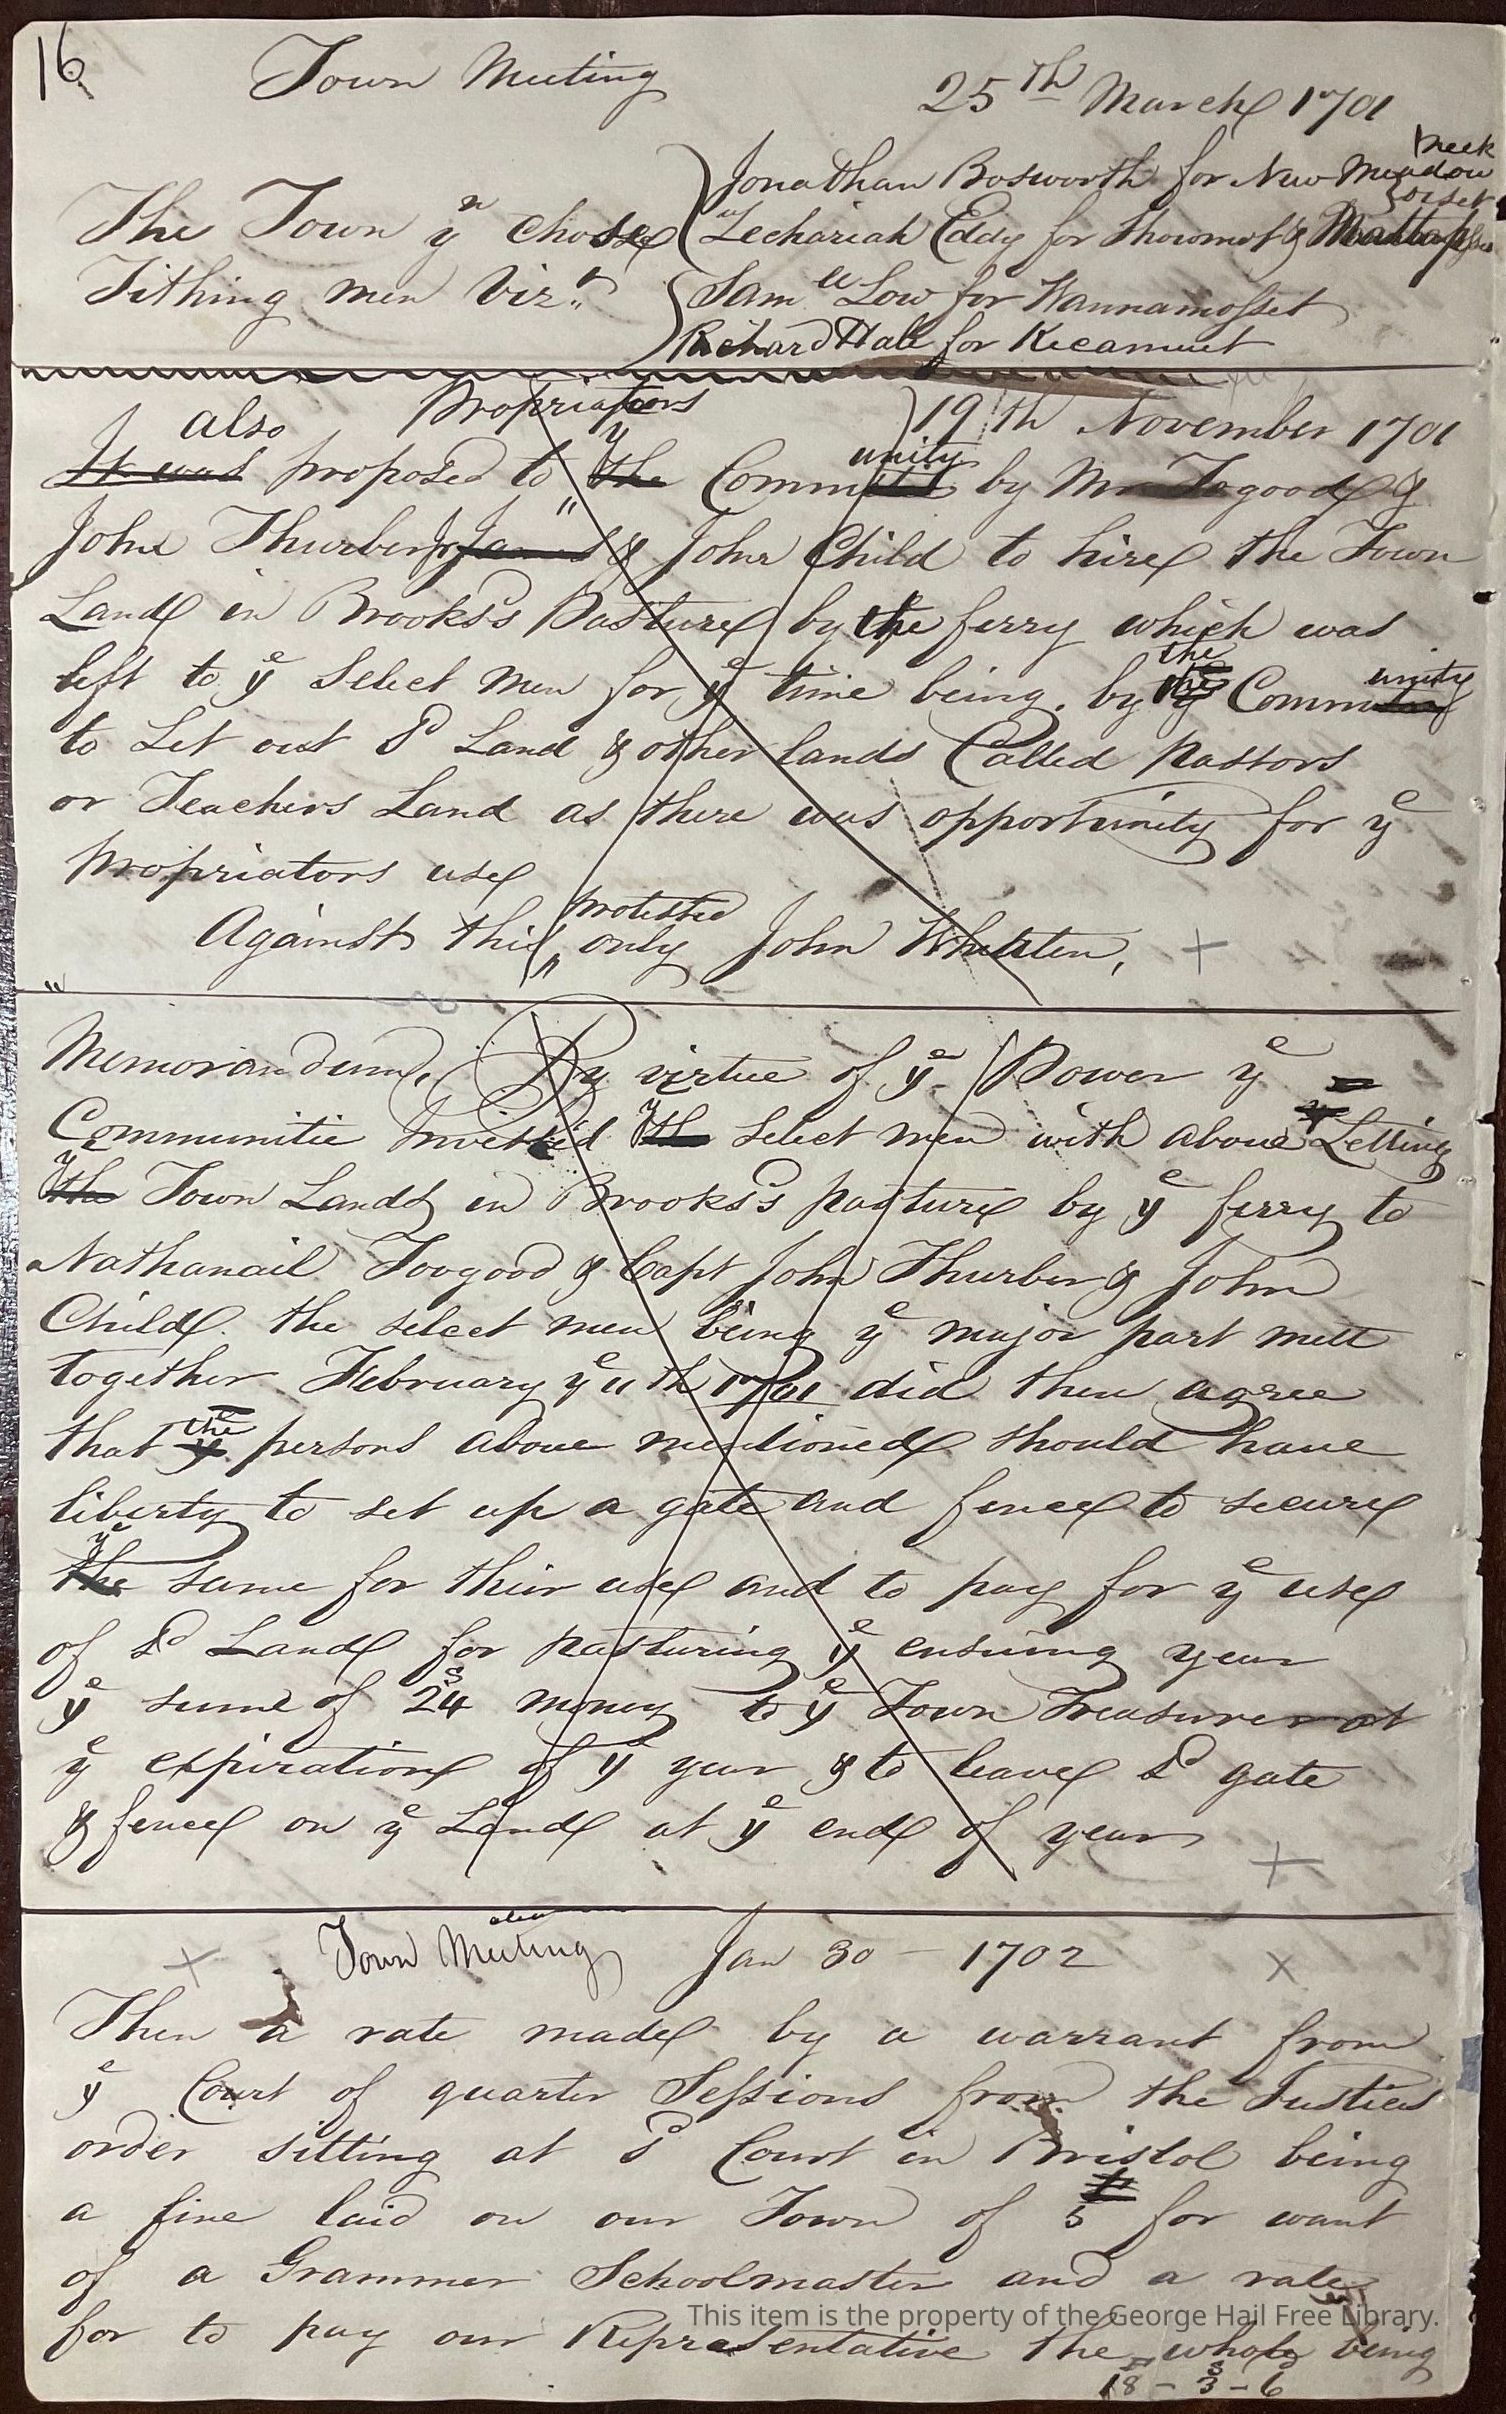 16
Town Meeting
25th March 1701
neck
Jonathan Bosworth for New Meadow
The Town yn chose Zechariah Eddy for Showmet &
Tithing men Viz. Samll Low for Wannamosset
Richard Hale for Kecamuet
also Propriators 19th November 1701
ye unity
It was proposed to the Comm by Mr Togood &
John Thurber James & John Child to hire the Town
Land in Brooks's Pasture by the ferry which was
the unity
left to ye Select Men for ye time being. by Comm
to Let out sd Land & other lands Called Pastors
or Teachers Land as there was opportunity for ye
propriators use
protested
Against this only John Whitten,
Memorandum, By virtue of ye Power ye
Communitie Invested the Select men with above Letting
ye
the Town Lands in Brooks's pasture by ye ferry to
Nathanail Toogood & Capt John Thurber & John
Child. the select men being ye major part mett
together February ye 11th 1701 did then agree
the
that ye persons above mentioned should have
liberty to set up a gate and fence to secure
ye
the same for their use and to pay for ye use
of sd Land for pasturing ye ensuing year
ye sume of 24s money to ye Town Treasurer at
ye expiration of ye year & to leave sd gate
& fence on ye Land at ye end of year
Town Meeting Jan 30 - 1702
Then a rate made by a warrant from
ye Court of quarter Sessions from the Justices
order sitting at sd Court in Bristol being
a fine laid on our Town of 5 for want
of a Grammer Schoolmaster and a rate
for to pay our Representative the whole being
18 - 3 - 6
This item is the property of the George Hail Free Library.